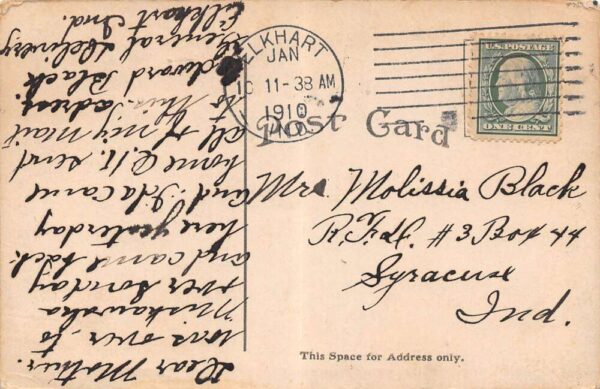 ELKHART
JAN
10 11-38 AM
1910
IND.
U.S. POSTAGE
ONE CENT
Post Card
Mrs. Molissia Black
R.F.d. #3 Box 44
Syracuse
Ind.
This Space for Address only.
Dear Mother.
was over to
Miskawaka
over Sunday
and came back
here yesterday
and Ida came
home O.K. send
all of my mail
to this adress.
Edward Black
General Delivery
Elkhart Ind.